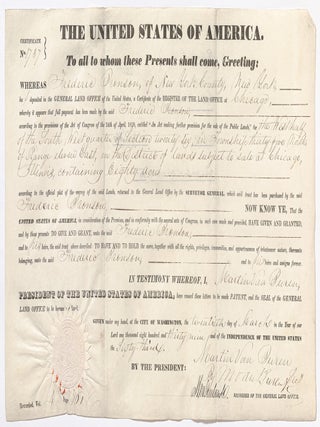 THE UNITED STATES OF AMERICA.
CERTIFICATE
No. 787
To all to whom these Presents shall come, Greeting:
WHEREAS Frederic Bronson, of New York County, New York
ha deposited in the GENERAL LAND OFFICE of the United States, a Certificate of the REGISTER OF THE LAND OFFICE at Chicago,
whereby it appears that full payment has been made by the said Frederic Bronson
according to the provisions of the Act of Congress of the 24th of April, 1820, entitled "An act making further provision for the sale of the Public Lands," for the West half
of the South West quarter of Section twenty six, in Township thirty one North
of Range eleven East, in the District of Lands subject to sale at Chicago,
Illinois, containing Eighty acres
according to the official plat of the survey of the said Lands, returned to the General Land Office by the SURVEYOR GENERAL, which said tract has been purchased by the said
Frederic Bronson NOW KNOW YE, That the
UNITED STATES OF AMERICA, in consideration of the Premises, and in conformity with the several acts of Congress, in such case made and provided, HAVE GIVEN AND GRANTED,
and by these presents DO GIVE AND GRANT, unto the said Frederic Bronson,
and to his heirs, the said tract above described: TO HAVE AND TO HOLD the same, together with all the rights, privileges, immunities, and appurtenances of whatsoever nature, thereunto
belonging, unto the said Frederic Bronson and to his heirs and assigns forever.
IN TESTIMONY WHEREOF, I, Martin Van Buren,
PRESIDENT OF THE UNITED STATES OF AMERICA, have caused these Letters to be made PATENT, and the SEAL of the GENERAL
LAND OFFICE to be hereunto affixed.
GIVEN under my hand, at the CITY OF WASHINGTON, the twentieth day of March in the Year of our
Lord one thousand eight hundred and thirty nine and of the INDEPENDENCE OF THE UNITED STATES
the Sixty third.
BY THE PRESIDENT: Martin Van Buren
By M. Van Buren Jr. Sec'y
RECORDER OF THE GENERAL LAND OFFICE.
Recorded, Vol.